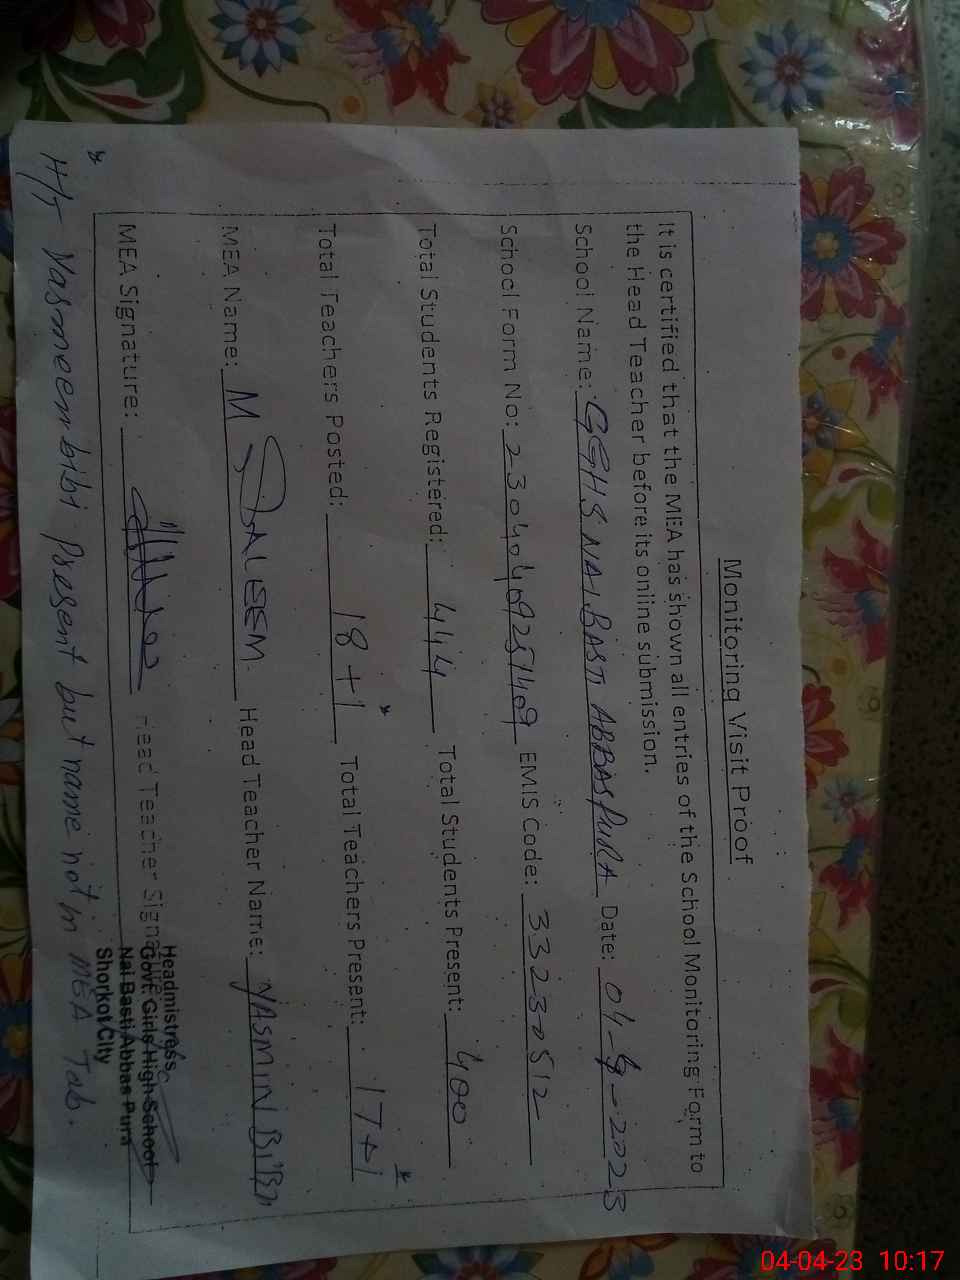 Monitoring Visit Proof
It is certified that the MEA has shown all entries of the School Monitoring Form to
the Head Teacher before its online submission.
School Name: GGHS NAI BASTI ABBAS PURA Date: 04-4-2023
School Form No: 23040409251409 EMIS Code: 33230512
Total Students Registered: 444 Total Students Present: 400
Total Teachers Posted: 18+1* Total Teachers Present: 17+1*
MEA Name: M SALEEM Head Teacher Name: YASMIN BIBI
MEA Signature: Head Teacher Signature:
Headmistress
Govt: Girls High School
Nai Basti Abbas Pura
Shorkot City
* H/T Yasmeen bibi present but name not in MEA Tab.
04-04-23 10:17